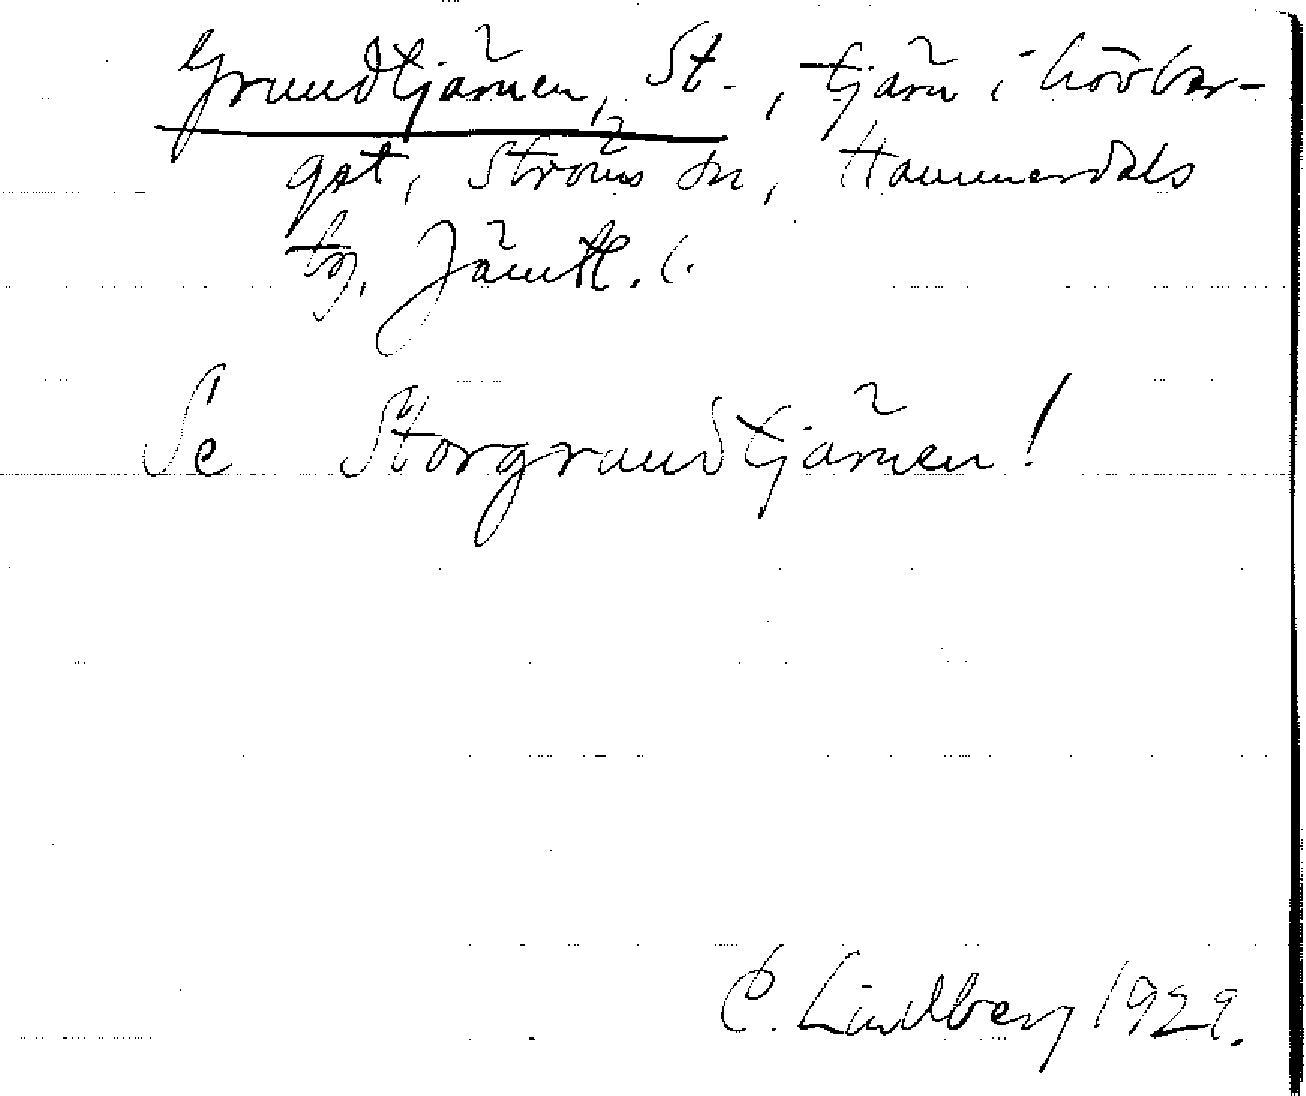 Grundtjärnen, St., tjärn i Lövber-
gat, Ströms sn, Hammerdals
tg, Jämtl. l.
Se Storgrundtjärnen!
C. Lindberg 1929.